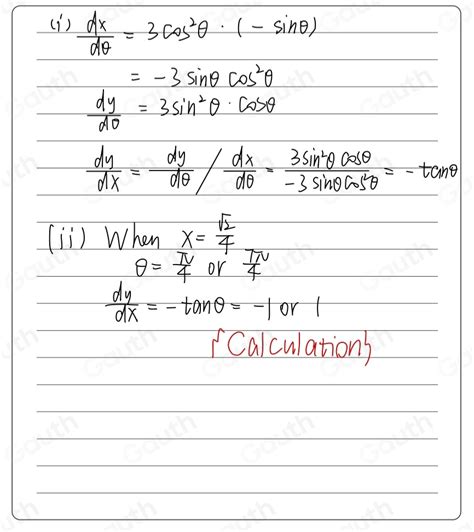 (i) dx/dθ = 3cos²θ · (- sinθ)
= -3 sinθ cos²θ
dy/dθ = 3sin²θ · cosθ
dy/dx = dy/dθ / dx/dθ = 3sin²θ cosθ / -3 sinθ cos²θ = - tanθ
(ii) When x = √2/4
θ = π/4 or 7π/4
dy/dx = - tanθ = -1 or 1
{Calculation}
Gauth